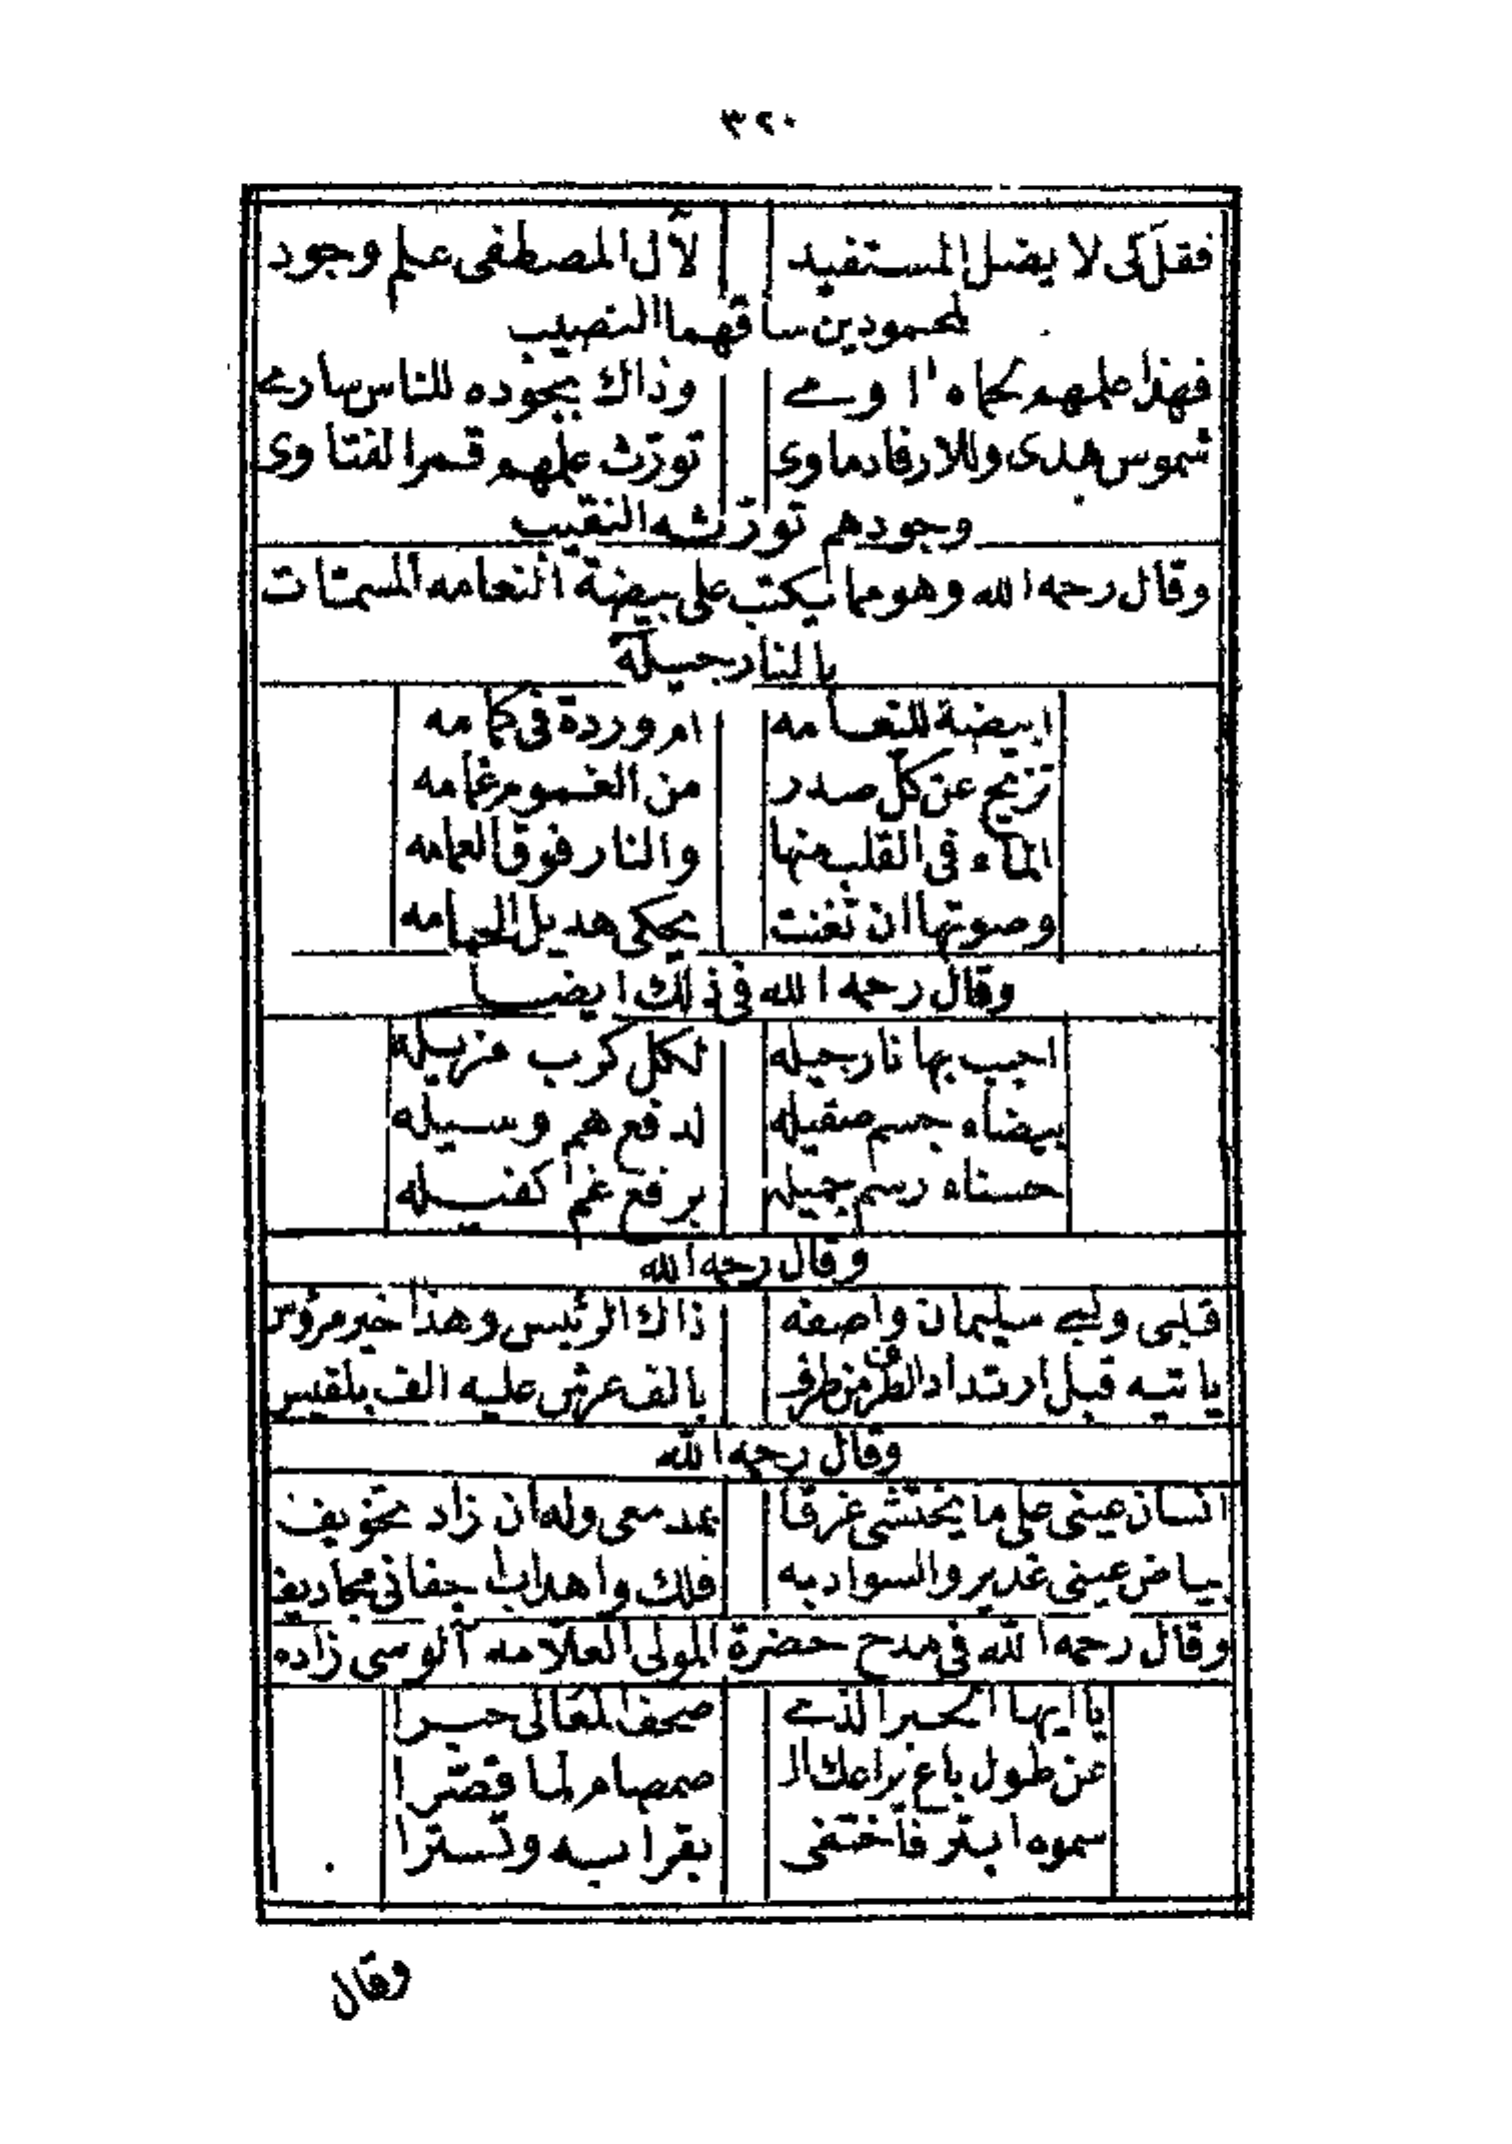 ٣٢٠
فقل كى لا يضل المستفيد لآل المصطفى علم وجود
لمحمودين ساقهما النصيب
فهذا علمهم كماه اوى وذاك بجوده للناس سارى
شموس هدى وللارفاد ماوى تورّث علمهم قمر الفتاوى
وجودهم تورّثه النقيب
وقال رحمه الله وهو مما يكتب على بيضة النعامه المسمات
بالنارجيلة
ابيضة للنعامه ام وردة فى كمامه
تزيح عن كل صدر من الغموم غمامه
الماء فى القلب منها والنار فوق العمامه
وصوتها ان تغنت يحكى هديل الحمامه
وقال رحمه الله فى ذلك ايضا
احبب بها نارجيله لكل كرب مزيله
بيضاء جسم صقيله لدفع هم وسيله
حسناء رسم جميله برفع غم كفيله
وقال رحمه الله
قلبى ولبى سليمان واصفه ذاك الرئيس وهذا خير مرؤس
ياتيه قبل ارتداد الطرف من طرف بالف عرش عليه الف بلقيس
وقال رحمه الله
انسان عينى على ما يختشى غرقا بمدمعى وله ان زاد تخويف
بياض عينى غدير والسواد به فلك واهداب جفانى مجاديف
وقال رحمه الله فى مدح حضرة المولى العلامه آلوسى زاده
يا ايها الحبر الذى صحف المعالى حبرا
عن طول باع يراعك الـ صمصام لما قصّرا
سموه ابتر فاختفى بقرابه وتسترا
وقال